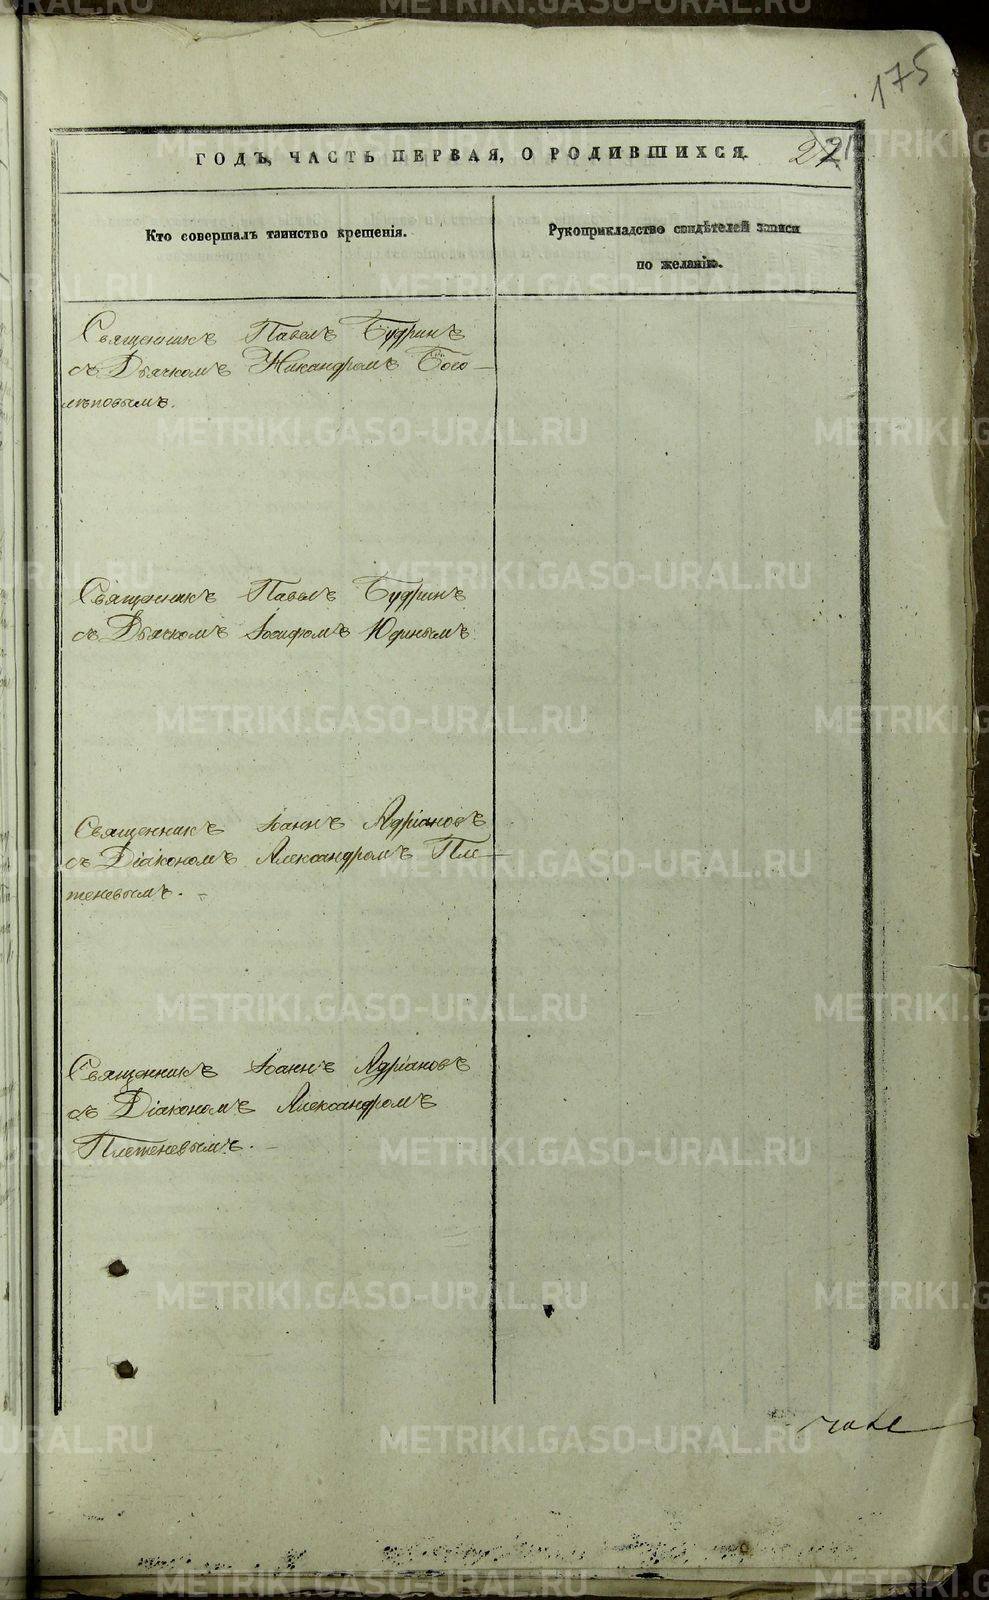 175
ГОДЪ, ЧАСТЬ ПЕРВАЯ, О РОДИВШИХСЯ.
Кто совершалъ таинство крещенія.
Рукоприкладство свидѣтелей записи
по желанію.
Священникъ Павелъ Будринъ
съ Дьячкомъ Никандромъ Бого-
лѣповымъ.
Священникъ Павелъ Будринъ
съ Дьячкомъ Іосифомъ Юдинымъ
Священникъ Іоаннъ Адріановъ
съ Діакономъ Александромъ Пле-
теневымъ.
Священникъ Іоаннъ Адріановъ
съ Діакономъ Александромъ
Плетеневымъ.
METRIKI.GASO-URAL.RU